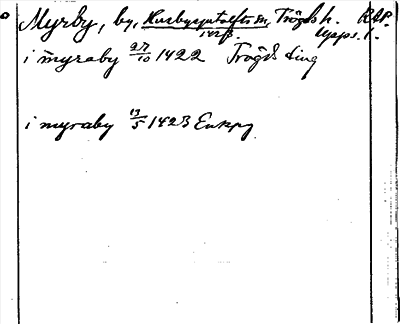 Myrby, by, Husbysjutolfts sn, Trögds h. RAP.
Upps. l.
i myraby 27/10 1422 Trögds ting
i myraby 13/5 1423 Enkpg